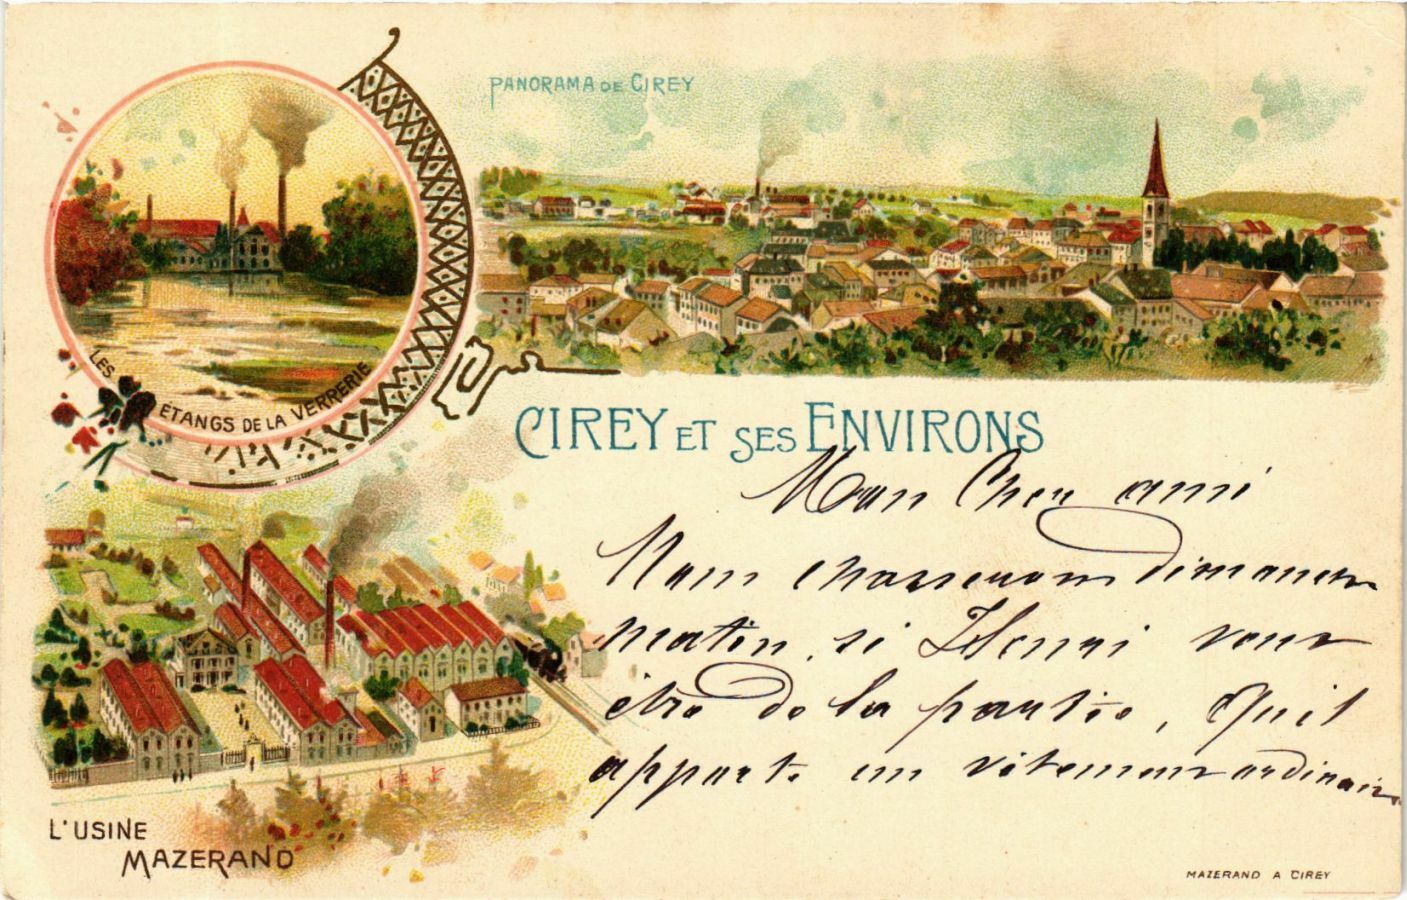 PANORAMA DE CIREY
LES ÉTANGS DE LA VERRERIE
CIREY ET SES ENVIRONS
Mon Cher ami
Nous chasserons dimanche
matin, si Henri veut
être de la partie, Qu'il
apporte un vêtement ordinaire
L'USINE
MAZERAND
MAZERAND A CIREY